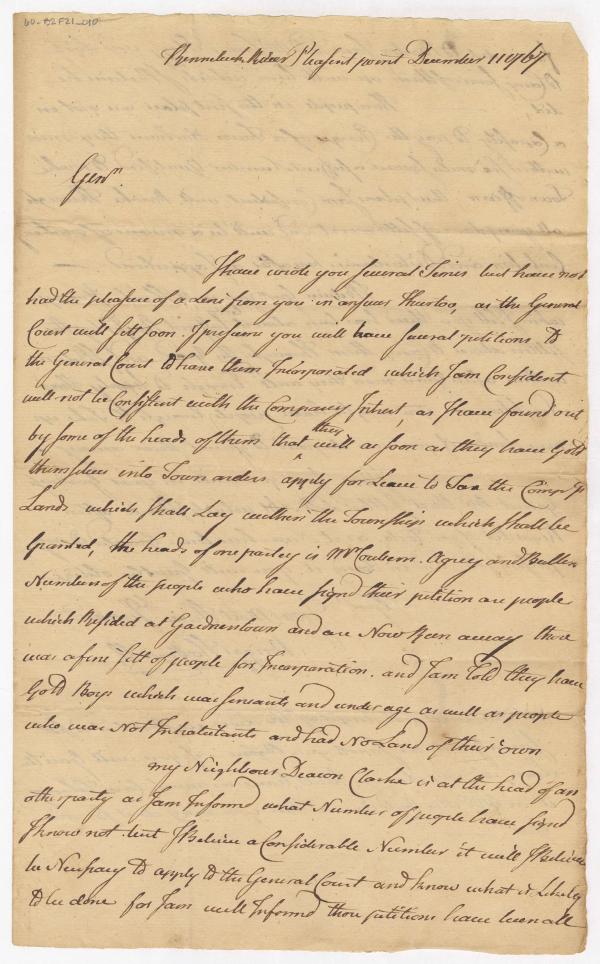 60-B2F21_010
Kennebeck River Pleasent point December 11 1767
Genn
I have wrote you several Times but have not
had the pleasure of a Line from you in answer thereto, as the General
Court will sitt soon. I presume you will have several petitions to
the General Court to have them Incorporated which I am Confident
will not be Consistent with the Company Intrest, as I have found out
by some of the heads of them that they will as soon as they have Gott
themselves into Town orders apply for Leave to Tax the Compys
Lands which shall Lay within the Townships which shall be
Granted, the heads of one partey is Mr Couborn. Agrey and Bullen
Numbers of the people who have signd their petition are people
which Resided at Gardnerstown and are Now Run away there
was a fine sett of people for Incorporation. and I am Told they have
Gott Boys which was servants and under age as well as people
who was Not Inhabitants and had No Land of their own
my Neighbour Deacon Clarke is at the head of an
other party as I am Informd what Number of people have signd
I know not. but I Believe a Considerable Number it will I Believe
be Nessary to apply to the General Court and know what is Likely
to be done for I am well Informd those petitions have been all